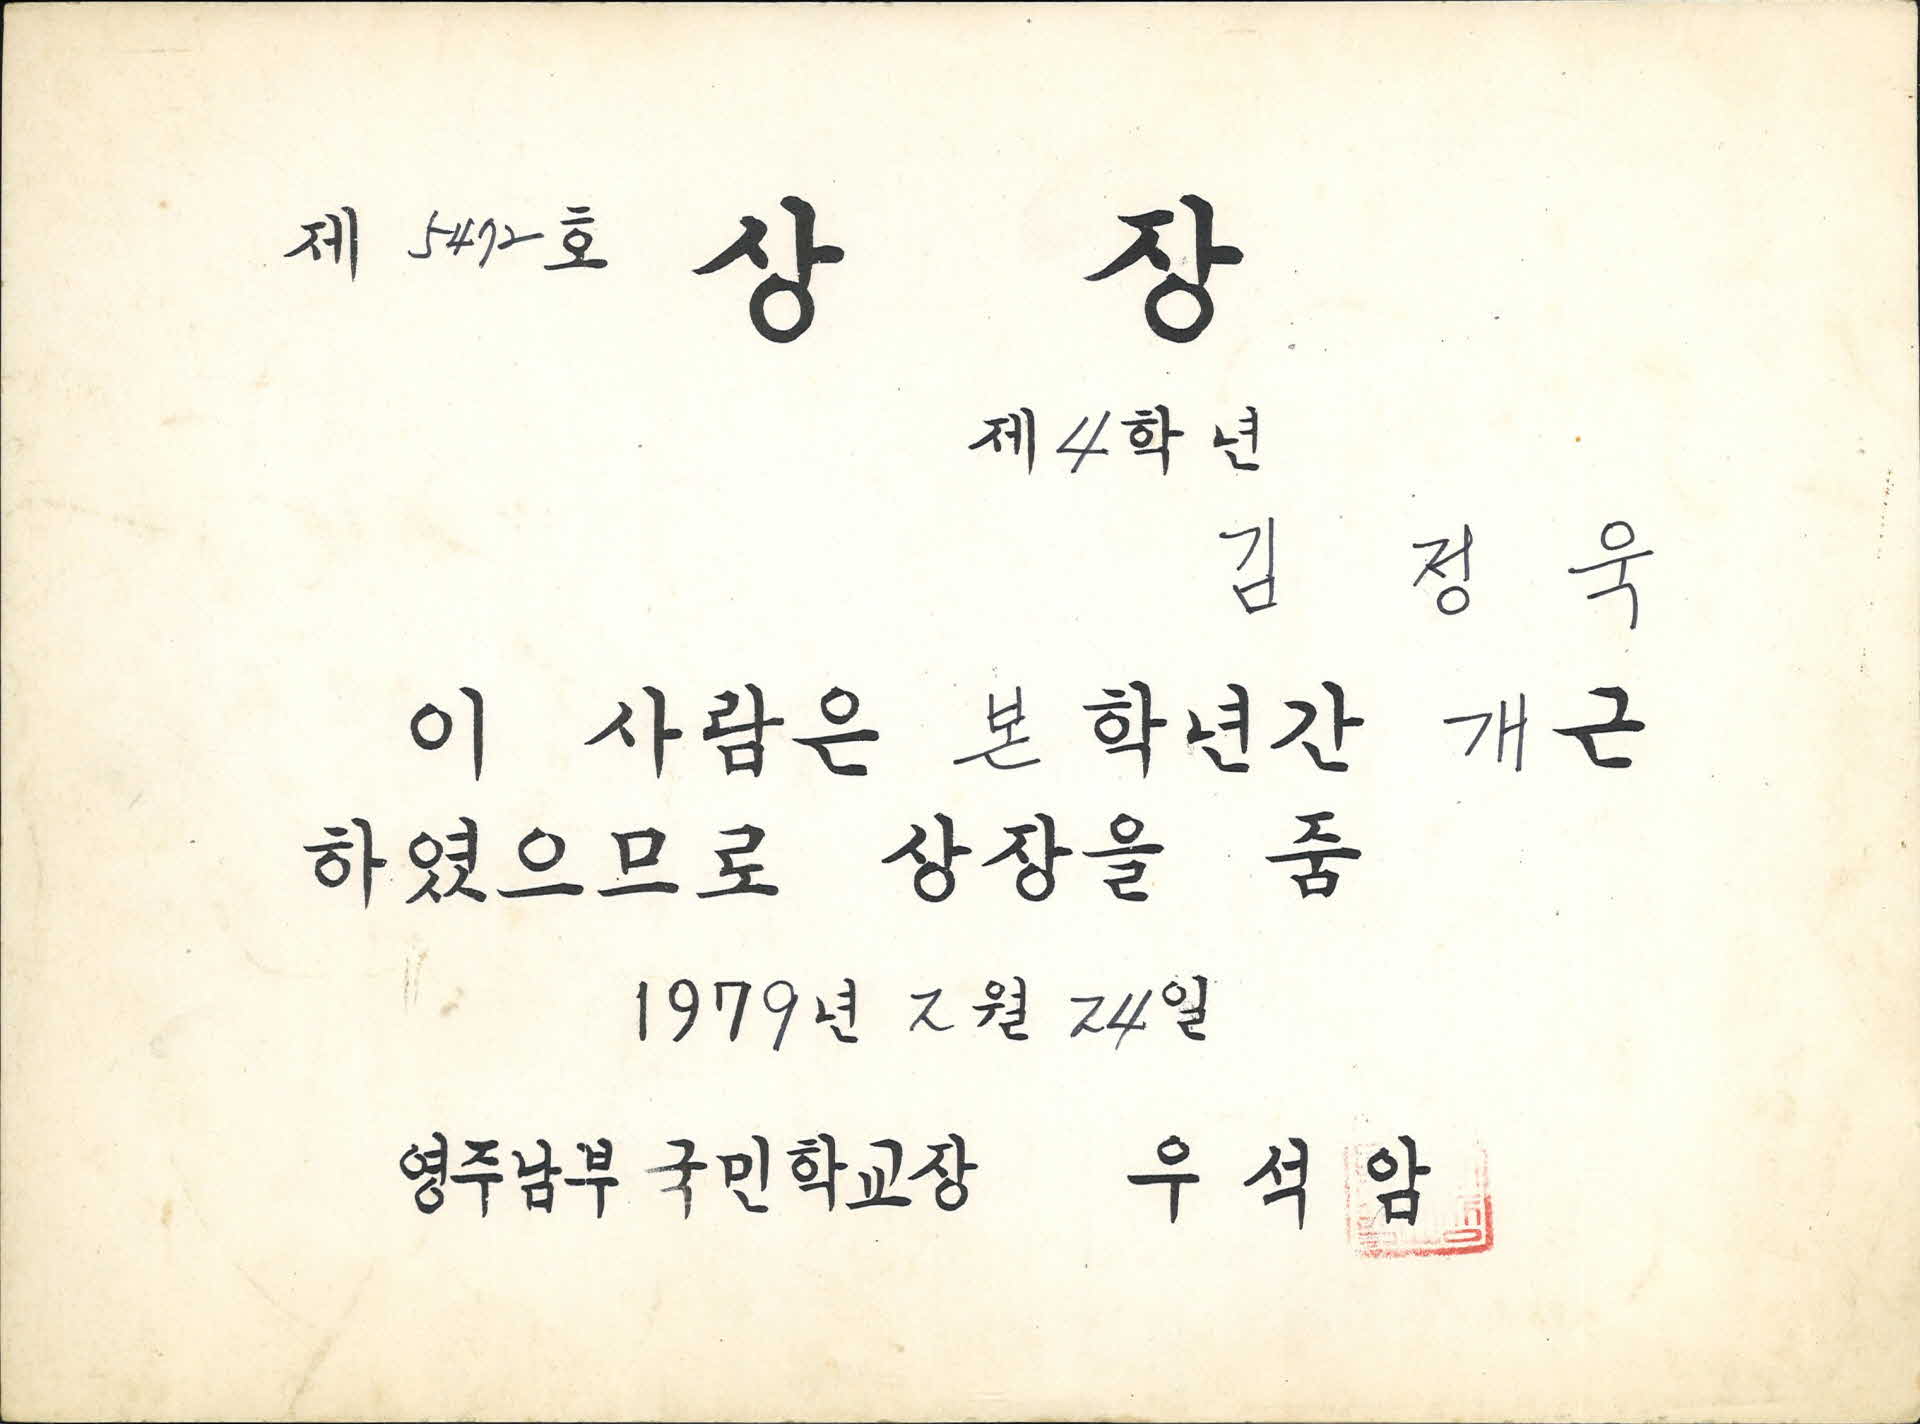 제 5472호 상 장
제4학년
김 정 욱
이 사람은 본 학년간 개근
하였으므로 상장을 줌
1979년 2월 24일
영주남부국민학교장 우석암